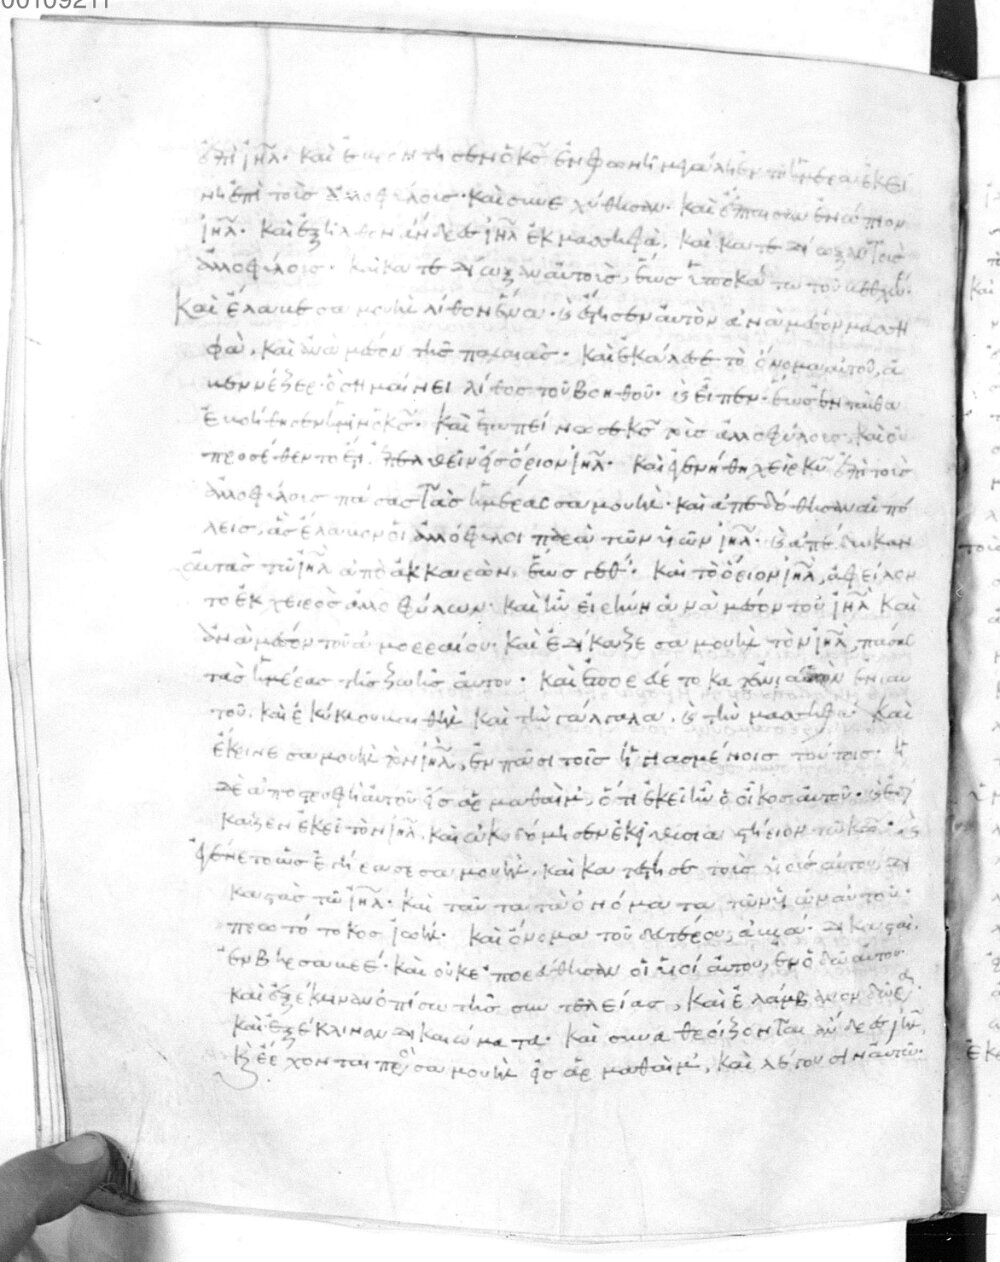 00109211
ἐπὶ ἰηλ. καὶ ἐβρόντησεν ὁ κς ἐν φωνῆ μεγάλη ἐν τῆ ἡμέρα ἐκεί
νη ἐπὶ τοὺς ἀλλοφύλους. καὶ συνεχύθησαν. καὶ ἔπταισαν ἐνώπιον
ἰηλ. καὶ ἐξῆλθον ἄνδρες ἰηλ ἐκ μασσηφὰ, καὶ κατεδίωξαν τοὺς
ἀλλοφύλους. καὶ κατεδίωξαν αὐτοὺς, ἕως ὑποκάτω τοῦ
Καὶ ἔλαβε σαμουὴλ λίθον ἕνα. καὶ ἔστησεν αὐτὸν ἀνὰ μέσον μασση
φὰ, καὶ ἀνὰ μέσον τῆς παλαιᾶς. καὶ ἐκάλεσε τὸ ὄνομα αὐτοῦ, ἀ
βεννέζερ. ὃ σημαίνει λίθος τοῦ βοηθοῦ. καὶ εἶπεν. ἕως ἐνταῦθα
ἐβοήθησεν ἡμῖν ὁ κς. Καὶ ἐταπείνωσε κς τοὺς ἀλλοφύλους, καὶ οὐ
προσέθεντο ἔτι ἐπελθεῖν εἰς ὅριον ἰηλ. καὶ ἐγενήθη χεὶρ κυ ἐπὶ τοὺς
ἀλλοφύλους πάσας τὰς ἡμέρας σαμουήλ. καὶ ἀπεδόθησαν αἱ πό
λεις, ἃς ἔλαβον οἱ ἀλλόφυλοι παρὰ τῶν υἱῶν ἰηλ. καὶ ἀπέδωκαν
αὐτὰς τῶ ἰηλ ἀπὸ ἀκκαρὼν, ἕως γέθ. καὶ τὸ ὅριον ἰηλ, ἀφείλον
το ἐκ χειρὸς ἀλλοφύλων. καὶ ἦν εἰρήνη ἀνὰ μέσον τοῦ ἰηλ καὶ
ἀνὰ μέσον τοῦ ἀμορραίου. καὶ ἐδίκαζε σαμουὴλ τὸν ἰηλ, πάσας
τὰς ἡμέρας τῆς ζωῆς αὐτοῦ. καὶ ἐπορεύετο κατ' ἐνιαυτὸν ἐνιαυ
τοῦ. καὶ ἐκύκλου βαιθὴλ καὶ τὴν γάλγαλα, καὶ τὴν μασσηφὰ. καὶ
ἔκρινε σαμουὴλ τὸν ἰηλ, ἐν πᾶσι τοῖς ἡγιασμένοις τούτοις. ἡ
δὲ ἀποστροφὴ αὐτοῦ εἰς ἀρμαθαὶμ, ὅτι ἐκεῖ ἦν ὁ οἶκος αὐτοῦ. καὶ ἐδί
καζεν ἐκεῖ τὸν ἰηλ. καὶ ὠκοδόμησεν ἐκεῖ θυσιαστήριον τῶ κω. καὶ
ἐγένετο ὡς ἐγήρασε σαμουὴλ, καὶ κατέστησε τοὺς υἱοὺς αὐτοῦ, δι
καστὰς τῶ ἰηλ. καὶ ταῦτα τὰ ὀνόματα τῶν υἱῶν αὐτοῦ.
πρωτότοκος ἰωήλ. καὶ ὄνομα τοῦ δευτέρου, ἀβιά. δικασταὶ
ἐν βηρσαβεέ. καὶ οὐκ ἐπορεύθησαν οἱ υἱοὶ αὐτοῦ, ἐν ὁδῶ αὐτοῦ.
καὶ ἐξέκλιναν ὀπίσω τῆς συντελείας, καὶ ἐλάμβανον δῶρα.
καὶ ἐξέκλιναν δικαιώματα. καὶ συναθροίζονται ἄνδρες ἰηλ,
καὶ ἔρχονται πρὸς σαμουὴλ εἰς ἀρμαθαὶμ, καὶ λέγουσιν αὐτῶ.